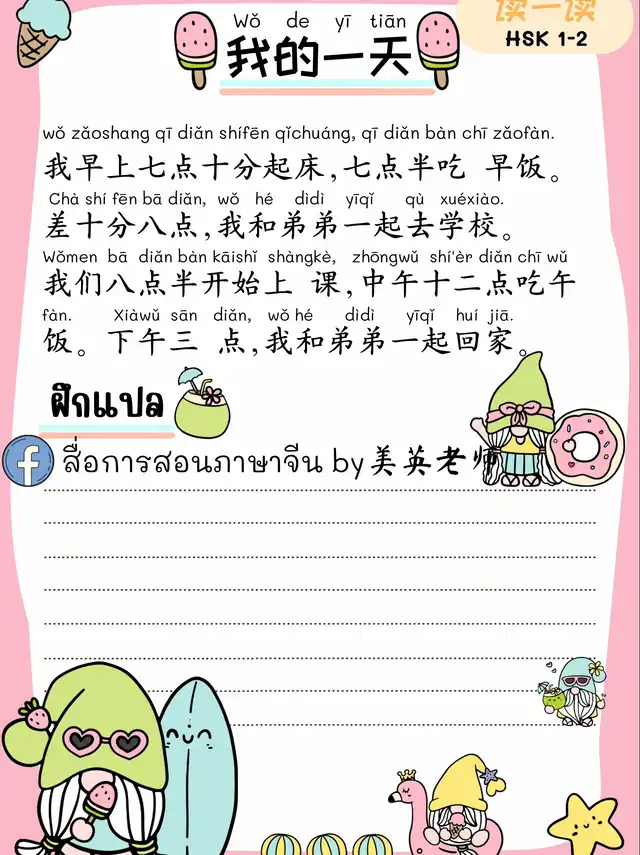 读一读
HSK 1-2
Wǒ de yī tiān
我的一天
wǒ zǎoshang qī diǎn shífēn qǐchuáng, qī diǎn bàn chī zǎofàn.
我早上七点十分起床,七点半吃 早饭。
Chà shí fēn bā diǎn, wǒ hé dìdì yīqǐ qù xuéxiào.
差十分八点,我和弟弟一起去学校。
Wǒmen bā diǎn bàn kāishǐ shàngkè, zhōngwǔ shí'èr diǎn chī wǔ
我们八点半开始上 课,中午十二点吃午
fàn. Xiàwǔ sān diǎn, wǒ hé dìdì yīqǐ huí jiā.
饭。下午三 点,我和弟弟一起回家。
ฝึกแปล
f สื่อการสอนภาษาจีน by 美英老师